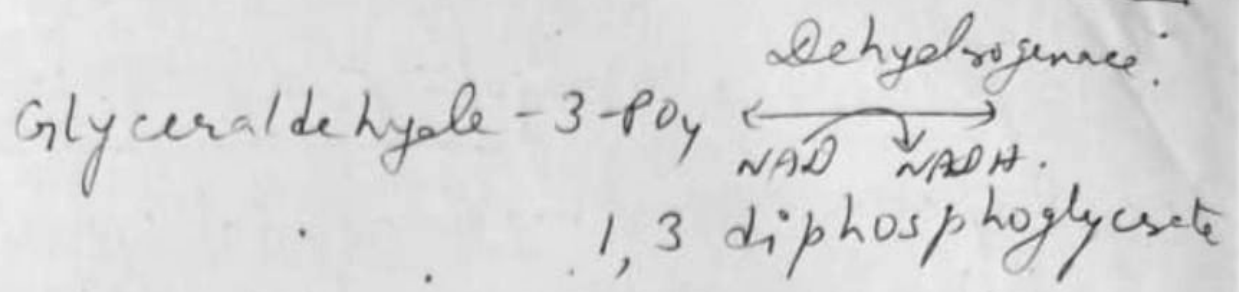 Dehydrogenase
Glyceraldehyde-3-PO4 ⟷
NAD NADH.
1,3 diphosphoglycerate